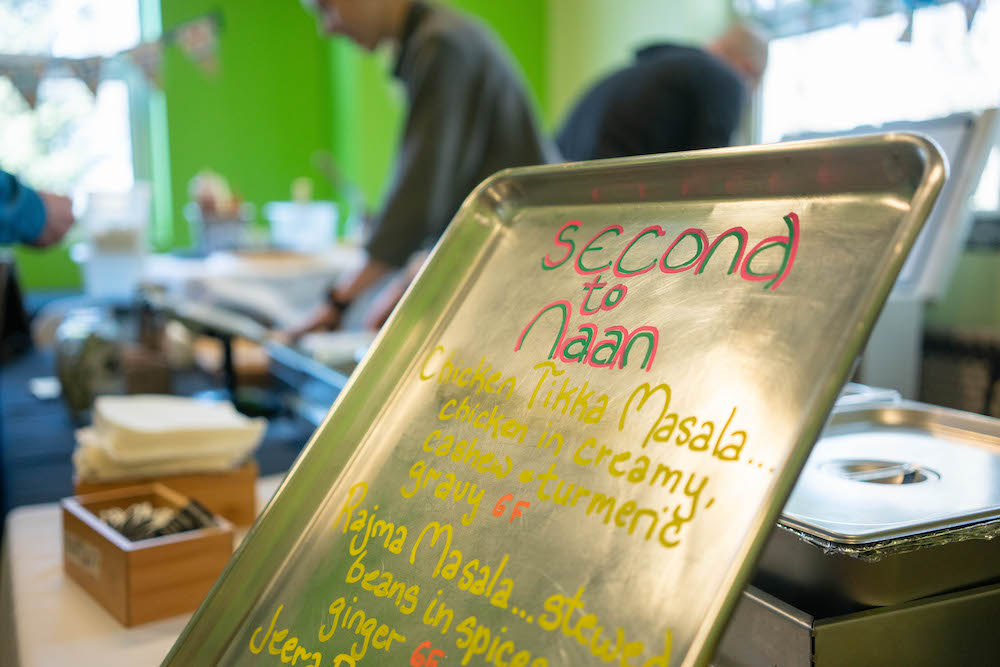 Second
to
Naan
Chicken Tikka Masala...
chicken in creamy,
cashew & turmeric
gravy GF
Rajma Masala... stewed
beans in spices
ginger GF
Jeera